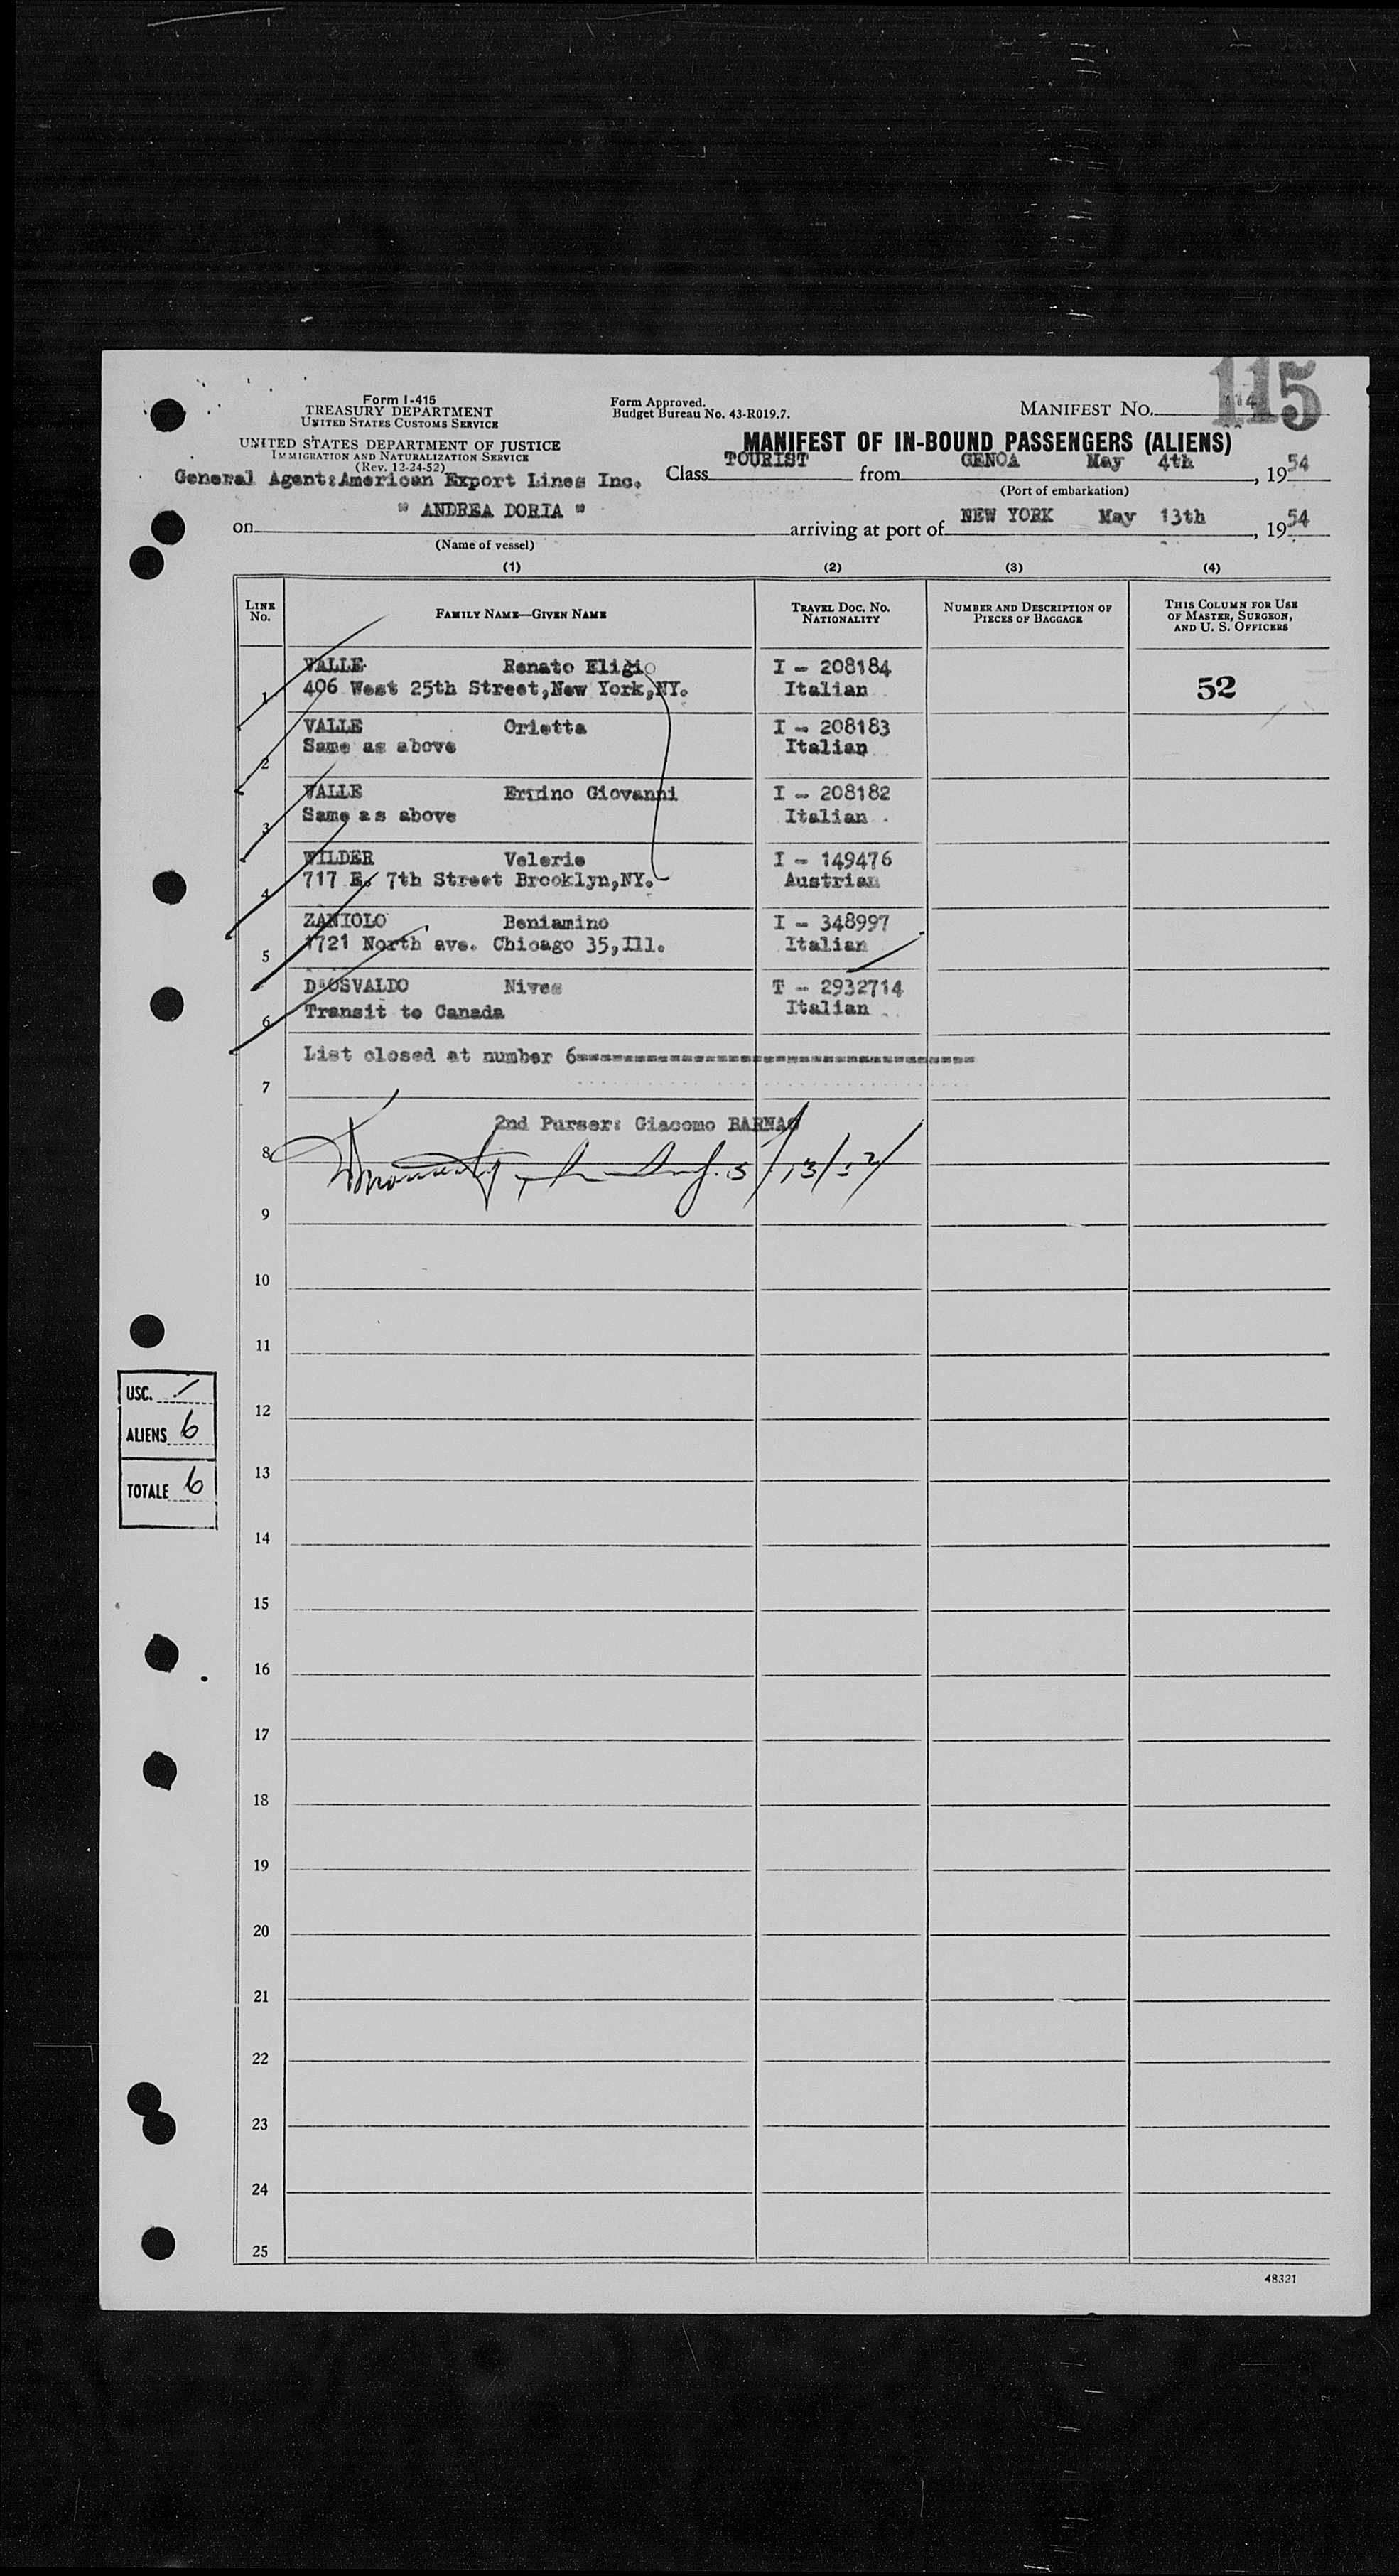 115
Form I-415
TREASURY DEPARTMENT
UNITED STATES CUSTOMS SERVICE
UNITED STATES DEPARTMENT OF JUSTICE
IMMIGRATION AND NATURALIZATION SERVICE
(Rev. 12-24-52)
Form Approved.
Budget Bureau No. 43-R019.7.
MANIFEST NO.
MANIFEST OF IN-BOUND PASSENGERS (ALIENS)
General Agent:American Export Lines Inc.
Class TOURIST from GENOA May 4th, 1954
(Port of embarkation)
on " ANDREA DORIA " arriving at port of NEW YORK May 13th, 1954
(Name of vessel)
(1) (2) (3) (4)
LINE No. FAMILY NAME—GIVEN NAME TRAVEL DOC. NO. NATIONALITY NUMBER AND DESCRIPTION OF PIECES OF BAGGAGE THIS COLUMN FOR USE OF MASTER, SURGEON, AND U. S. OFFICERS
1 VALLE Renato Eligio I - 208184
406 West 25th Street,New York,NY. Italian 52
2 VALLE Orietta I - 208183
Same as above Italian
3 VALLE Giovanni I - 208182
Same as above Italian
4 WILDER Velerie I - 149476
717 E. 7th Street Brooklyn,NY. Austrian
5 ZANIOLO Beniamino I - 348997
1721 North ave. Chicago 35,Ill. Italian
6 D'OSVALDO Nives T - 2932714
Transit to Canada Italian
List closed at number 6
7
2nd Purser: Giacomo BARNAO
8
9
10
11
12
13
14
15
16
17
18
19
20
21
22
23
24
25
USC. /
ALIENS 6
TOTALE 6
48321